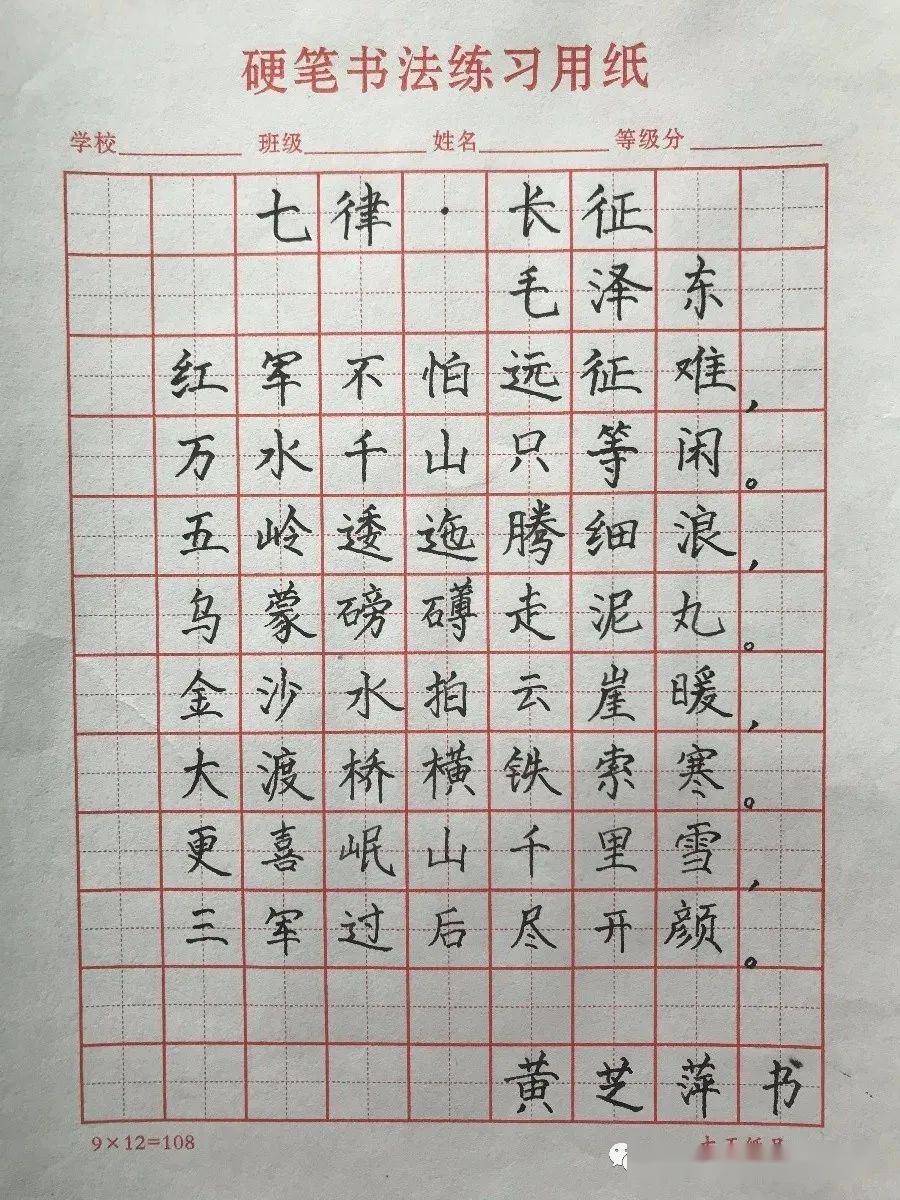 硬笔书法练习用纸
学校 班级 姓名 等级分
七律·长征
毛泽东
红军不怕远征难，
万水千山只等闲。
五岭逶迤腾细浪，
乌蒙磅礴走泥丸。
金沙水拍云崖暖，
大渡桥横铁索寒。
更喜岷山千里雪，
三军过后尽开颜。
黄芝萍书
9×12=108